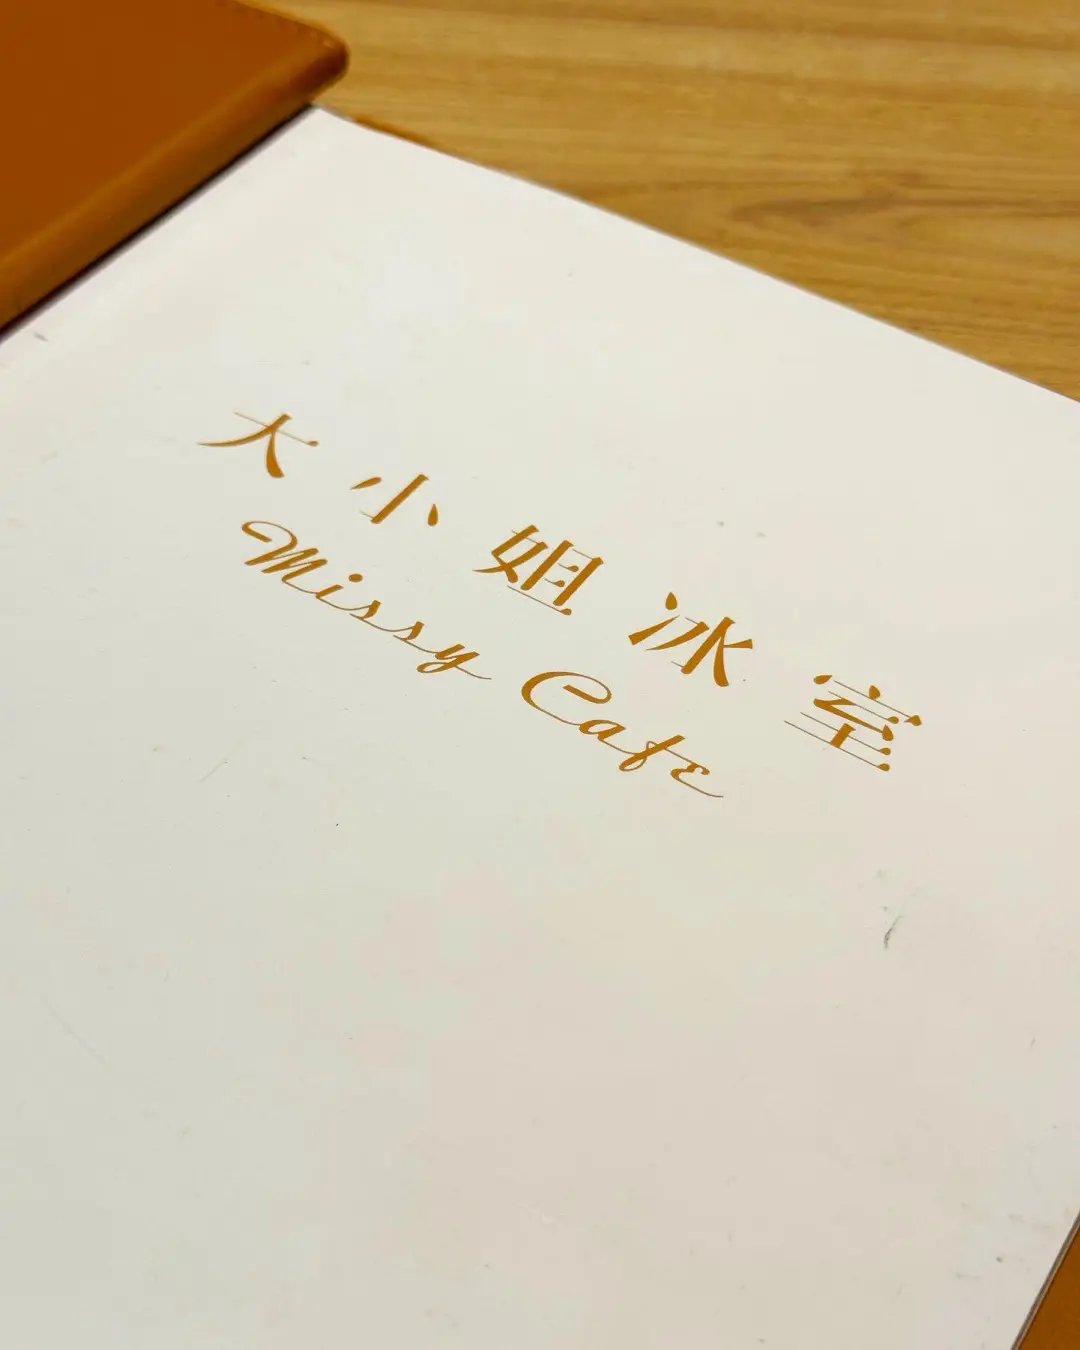 大小姐冰室
Missy Cafe